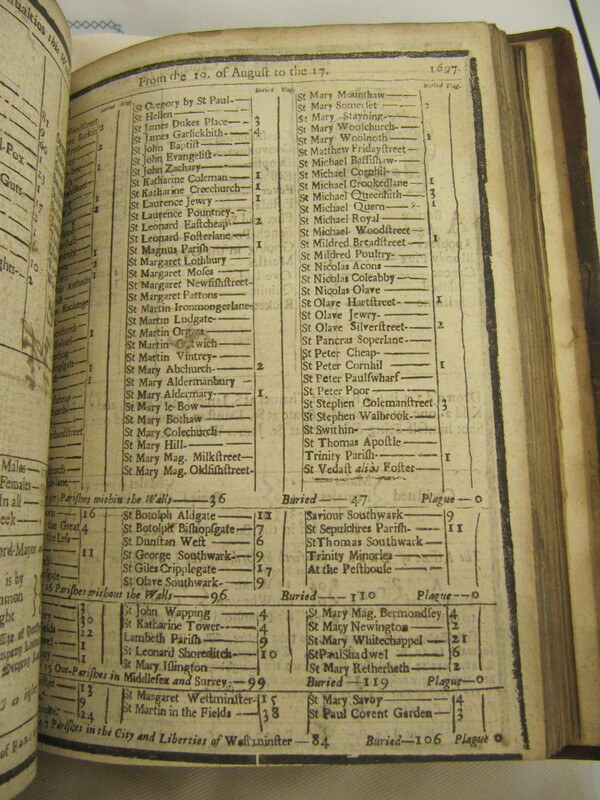 From the 10. of August to the 17. 1697.
Buried Plag.
Buried Plag.
St Gregory by St Paul
St Hellen
St James Dukes Place 3
St James Garlickhith 4
St John Baptist
St John Evangelist
St John Zachary
St Katharine Coleman 1
St Katharine Creechurch 1
St Laurence Jewry 1
St Laurence Pountney
St Leonard Eastcheap 2
St Leonard Fosterlane
St Magnus Parish 1
St Margaret Lothbury
St Margaret Moses
St Margaret Newfishstreet
St Margaret Pattons
St Martin Ironmongerlane
St Martin Ludgate
St Martin
St Martin
St Martin Vintrey
St Mary Abchurch 2
St Mary Aldermanbury
St Mary Aldermary 1
St Mary le Bow
St Mary Bothaw
St Mary Colechurch
St Mary Hill
St Mary Mag. Milkstreet
St Mary Mag. Oldfishstreet
St Mary Mounthaw
St Mary Somerset 2
St Mary Stayning
St Mary Woolchurch
St Mary Woolnoth 1
St Matthew Fridaystreet
St Michael Bassishaw
St Michael Cornhil
St Michael Crookedlane 1
St Michael Queenhith 3
St Michael Quern 1
St Michael Royal
St Michael Woodstreet
St Mildred Breadstreet 1
St Mildred Poultry
St Nicolas Acons
St Nicolas Coleabby
St Nicolas Olave
St Olave Hartstreet 1
St Olave Jewry
St Olave Silverstreet 2
St Pancras Soperlane
St Peter Cheap
St Peter Cornhil 1
St Peter Paulswharf
St Peter Poor
St Stephen Colemanstreet 3
St Stephen Walbrook
St Swithin
St Thomas Apostle
Trinity Parish 1
St Vedast alias Foster
97 Parishes within the Walls 36 Buried 47 Plague 0
St Botolph Aldgate 12
St Botolph Bishopsgate 7
St Dunstan West 6
St George Southwark 9
St Giles Cripplegate 17
St Olave Southwark 9
Saviour Southwark 9
St Sepulchres Parish 11
St Thomas Southwark
Trinity Minories
At the Pesthouse
16 Parishes without the Walls 96 Buried 110 Plague 0
St John Wapping 4
St Katharine Tower 4
Lambeth Parish 9
St Leonard Shoreditch 10
St Mary Islington
St Mary Mag. Bermondsey 4
St Mary Newington 2
St Mary Whitechappel 21
St Paul Shadwel 6
St Mary Retherheth 2
15 Out-Parishes in Middlesex and Surrey 99 Buried 119 Plague 0
St Margaret Westminster 15
St Martin in the Fields 38
St Mary Savoy 4
St Paul Covent Garden 3
7 Parishes in the City and Liberties of Westminster 84 Buried 106 Plague 0